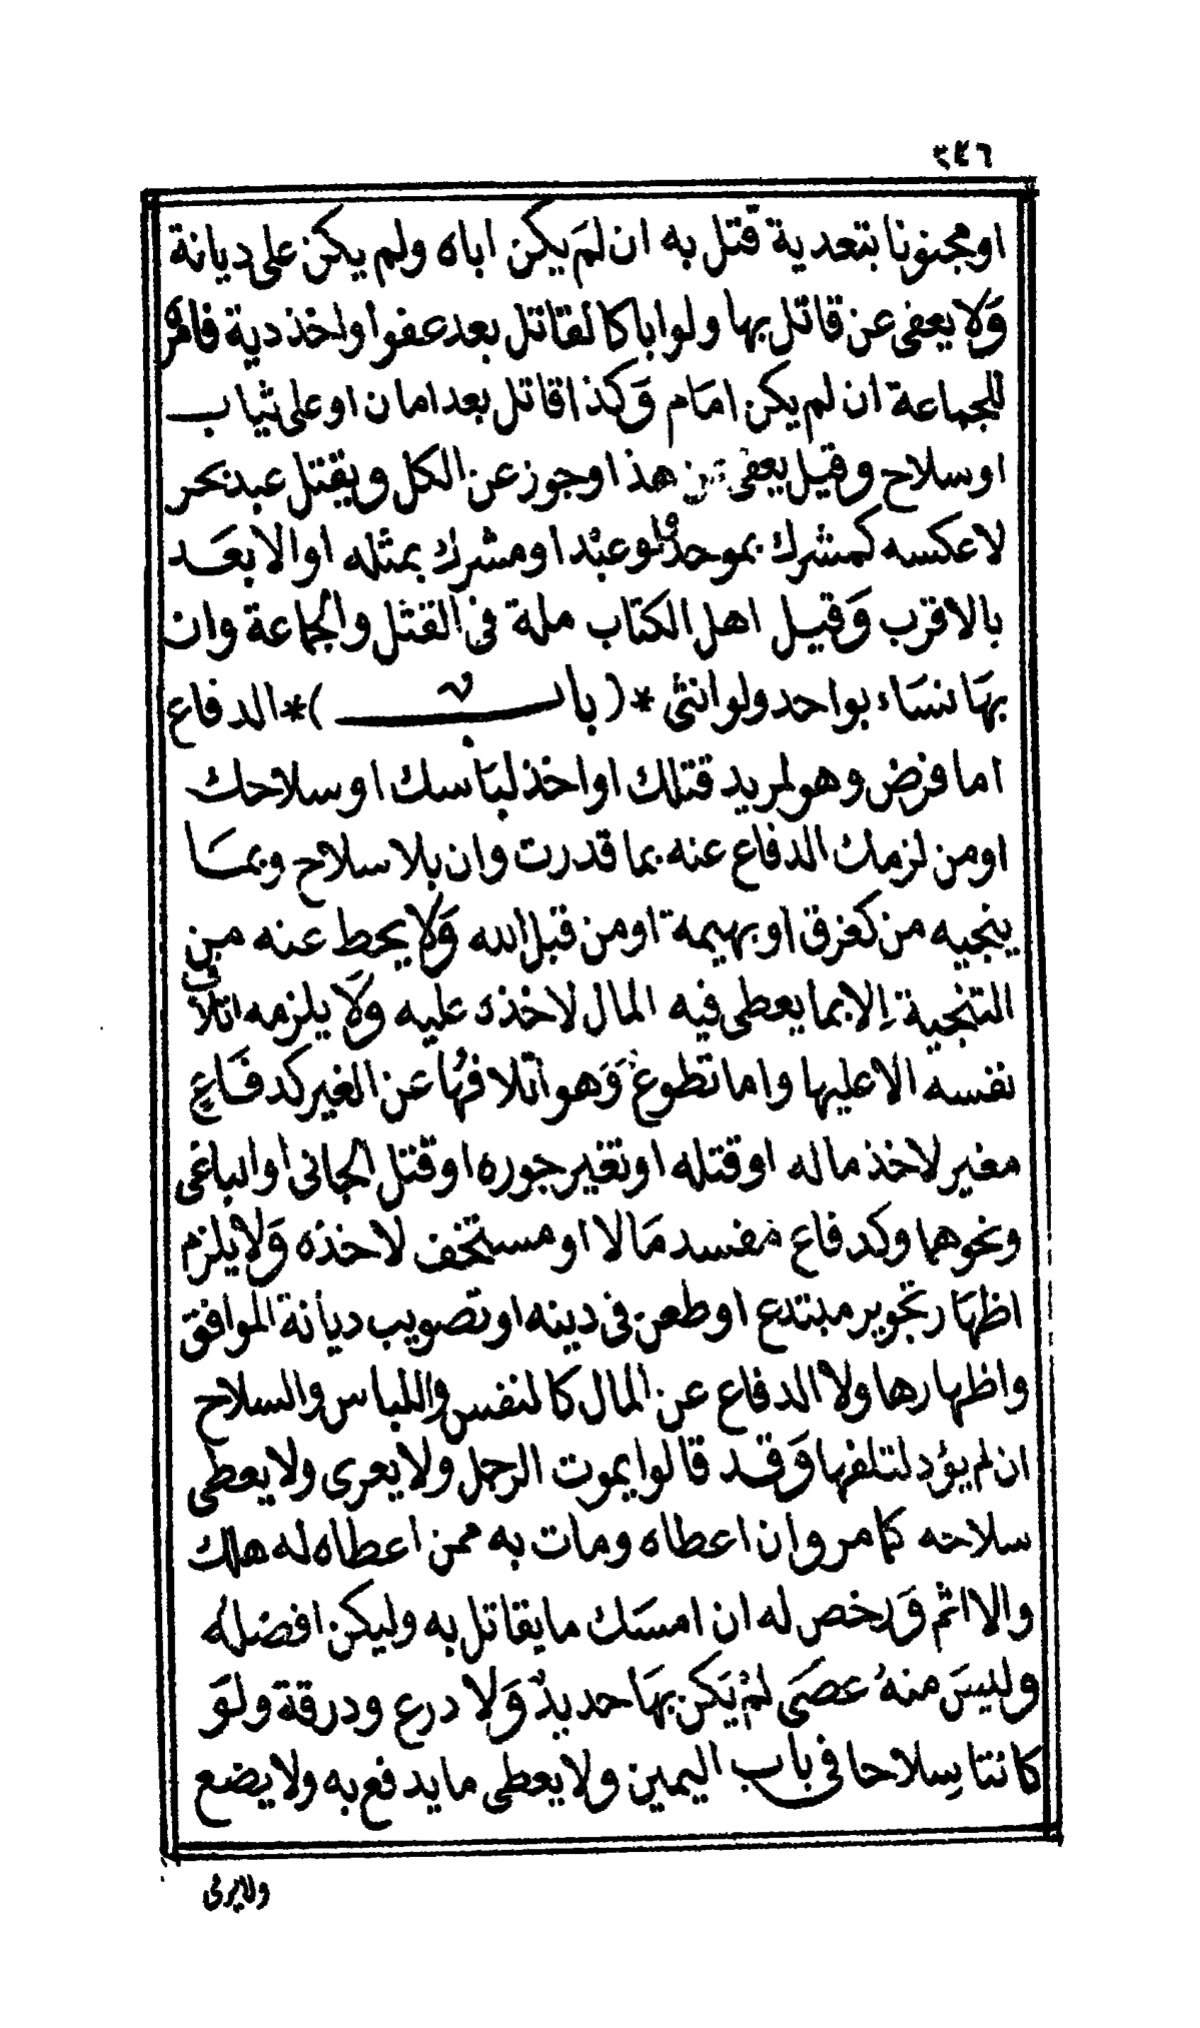 ٣٤٦
او مجنونا بتعدية قتل به ان لم يكن اباه ولم يكن على ديانة
وَلا يعفى عن قاتل بها ولو ابا كالقاتل بعد عفو أو اخذ دية فامره
للجماعة ان لم يكن امَام وَكذا قاتل بعد امان او على ثياب
او سلاح وقيل يعفى عن هذا وجوز عن الكل ويقتل عبد بحر
لا عكسه كمشرك بموحد ولو عبْدا ومشرك بمثله او الابعَد
بالاقرب وَقيل اهل الكتاب ملة فى القتل والجماعة وان
بهَا نسَاء بواحد ولو انثى *( بابٌ )* الدفاع
اما فرض وهو لمريد قتلك او اخذ لبَاسك او سلاحك
او من لزمك الدفاع عنه بما قدرت وان بلا سلاح وبمَا
ينجيه من كغرق او بهيمة او من قبل الله وَلا يحط عنه من
التنجية إلا بما يعطى فيه المال لاخذه عليه وَلا يلزمه اتلاف
نفسه الا عليها واما تطوع وَهو اتلافهُا عن الغير كدفَاعٍ
مغير لاخذ ماله او قتله او تغيير جوره او قتل الجانى أو الباغى
ونحوهما وكدفاع مفسد مَالا او مستخف لاخذه وَلا يلزم
اظهَار تجوير مبتدع او طعن فى دينه او تصويب ديانة الموافق
واظهارها ولا الدفاع عن المال كالنفس واللباس والسلاح
ان لم يؤد لتلفها وَقد قالوا يموت الرجل ولا يعرى ولا يعطى
سلاحه كما مر وان اعطاه ومات به ممن اعطاه له هلك
والا اثم وَرخص له ان امسَك ما يقاتل به وليكن افضله
وليسَ منهُ عصَى لمْ يَكن بهَا حديدٌ وَلا درع ودرقة ولوَ
كانتا سِلاحا فى باب اليمين ولا يعطى ما يدفع به ولا يضع
ولا يرمى